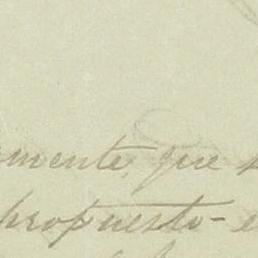 mente, que
propuesto-